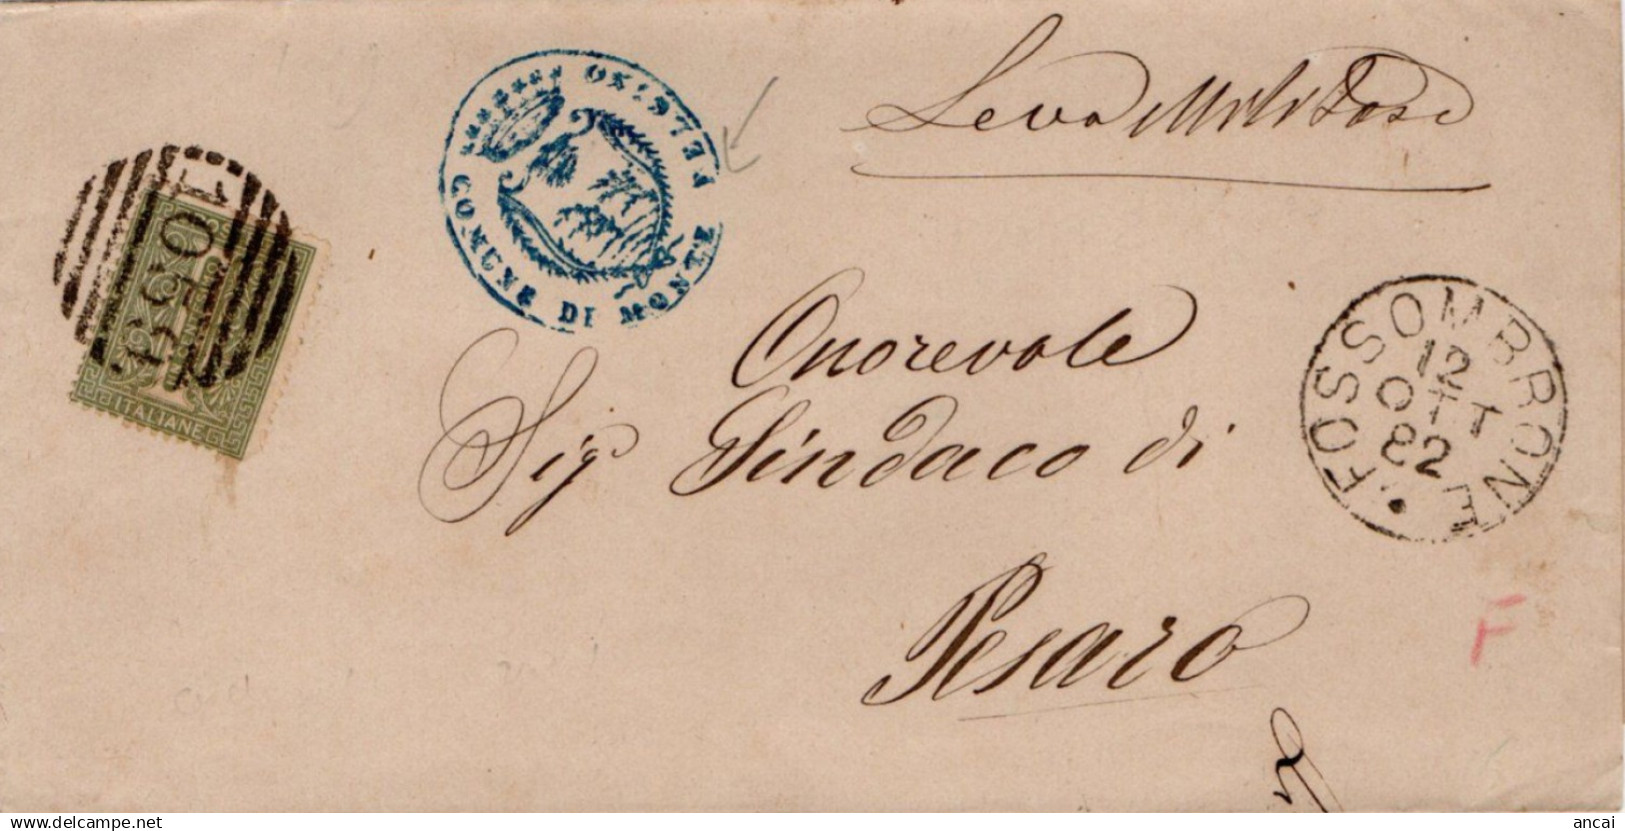 Leva Militare
COMUNE DI MONTE FELCINO
1059
ITALIANE
Onorevole
Sig Sindaco di
Pesaro
FOSSOMBRONE
12
OTT
82
F
delcampe.net
ancai